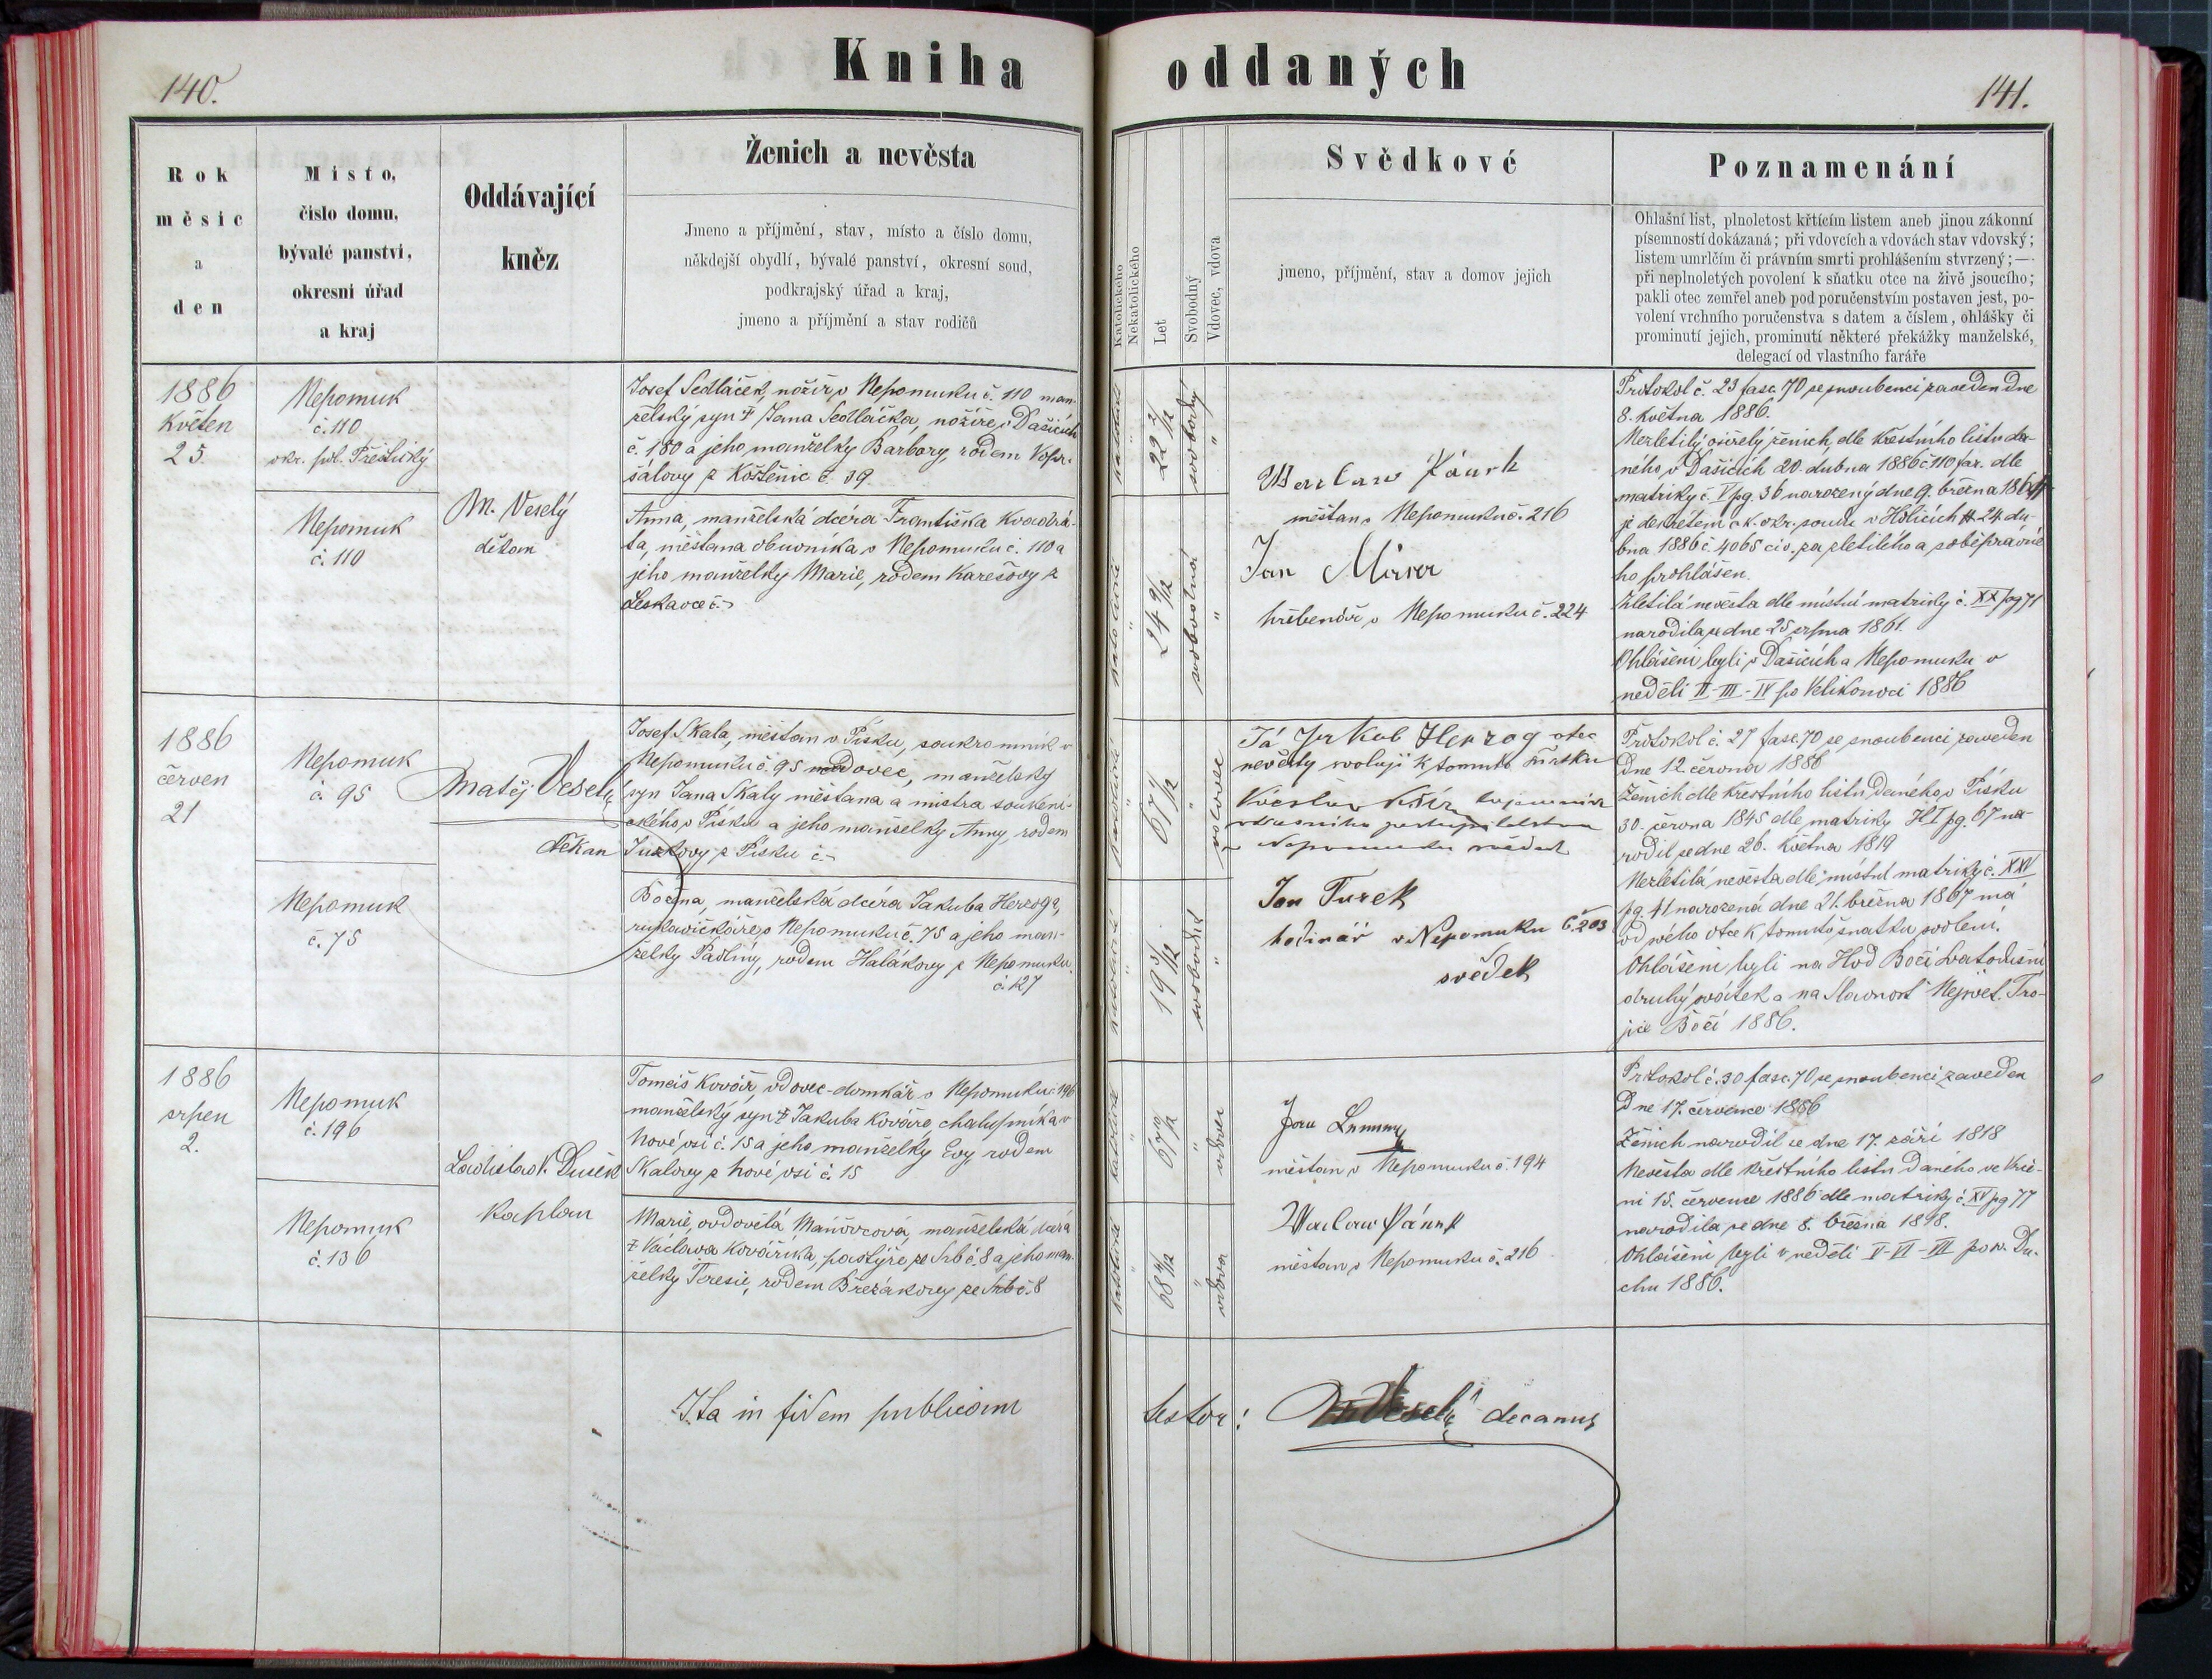 140.
Kniha oddaných
141.
Rok
měsíc
a
den
Misto,
číslo domu,
bývalé panství,
okresní úřad
a kraj
Oddávající
kněz
Ženich a nevěsta
Jmeno a příjmění, stav, místo a číslo domu,
někdejší obydlí, bývalé panství, okresní soud,
podkrajský úřad a kraj,
jmeno a příjmění a stav rodičů
Katolického
Nekatolického
Let
Svobodný
Vdovec, vdova
Svědkové
jmeno, příjmění, stav a domov jejich
Poznamenání
Ohlašní list, plnoletost křtícím listem aneb jinou zákonní
písemností dokázaná; při vdovcích a vdovách stav vdovský;
listem umrlčím či právním smrti prohlášením stvrzený; —
při neplnoletých povolení k sňatku otce na živě jsoucího;
pakli otec zemřel aneb pod poručenstvím postaven jest, po-
volení vrchního poručenstva s datem a číslem, ohlášky či
prominutí jejich, prominutí některé překážky manželské,
delegací od vlastního faráře
1886
Květen
25.
Nepomuk
č. 110
okr. pol. Přeštický
Nepomuk
č. 110
M. Veselý
děkan
Josef Sedláček, nožíř v Nepomuku č. 110 man-
želský syn † Jana Sedláčka, nožíře v Dašicích
č. 180 a jeho manželky Barbary, rodem Vopr-
šálovy z Koštěnic č. 39
Anna, manželská dcéra Františka Kvadrá-
ta, měšťana obuvníka v Nepomuku č. 110 a
jeho manželky Marie, rodem Karešovy z
Leskavce č. -
katolické
22 2/12
svobodný
katolické
24 9/12
svobodná
Václav Pánek
měšťan v Nepomuku č. 216
Jan
hřebenář v Nepomuku č. 224
Protokol č. 23 fasc. 70 se snoubenci zaveden dne
8. května 1886.
Nezletilý osiřelý ženich, dle křestního listu da-
ného v Dašicích 20. dubna 1886 č. 110 far. dle
matriky č. V pg. 36 narozený dne 9. března 1864
je dekretem c. k. okr. soudu v Holicích 24. du-
bna 1886 č. 4065 civ. za zletilého a soběprávné-
ho prohlášen.
Zletilá nevěsta dle místní matriky č. XX pg 71
narodila se dne 25 srpna 1861.
Ohlášeni byli v Dašicích a Nepomuku v
neděli II - III - IV po Velikonoci 1886
1886
červen
21
Nepomuk
č. 95
Nepomuk
č. 75
Matěj Veselý
děkan
Josef Skala, měšťan v Písku, soukromník v
Nepomuku č. 95 vdovec, manželský
syn Jana Skaly měšťana a mistra soukeni-
ckého v Písku a jeho manželky Anny, rodem
z Písku č. -
Božena, manželská dcéra Jakuba Herzoga,
rukavičkáře v Nepomuku č. 75 a jeho man-
želky Pavlíny, rodem Halákovy z Nepomuku
č. 127
katolické
67 1/12
vdovec
katolické
19 3/12
svobodná
Já Jakub Herzog otec
nevěsty svoluji k tomuto sňatku
v Nepomuku svědek
Jan Turek
hodinář v Nepomuku č. 203
svědek
Protokol č. 27 fasc. 70 se snoubenci zaveden
Dne 12 června 1886
Ženich dle křestního listu daného v Písku
30. června 1845 dle matriky pg. 67 na-
rodil se dne 26. května 1819
Nezletilá nevěsta dle místní matriky č. XXI
pg. 41 narozená dne 21. března 1867 má
od svého otce k tomuto sňatku svolení.
Ohlášeni byli na Hod Boží Svatodušní
druhý svátek a na Slavnost Nejsvět. Tro-
jice Boží 1886.
1886
srpen
2.
Nepomuk
č. 196
Nepomuk
č. 136
Ladislav Dušek
Kaplan
Tomáš Kovář, vdovec-domkář v Nepomuku č. 196
manželský syn † Jakuba Kováře, chalupníka v
Nové vsi č. 15 a jeho manželky Evy, rodem
Skalovy z Nové vsi č. 15
Marie, ovdovělá manželská dcéra
† Václava Kováříka, pastýře ze Srb č. 8 a jeho man-
želky Teresie, rodem Březákovy ze Srb č. 8
katolické
67 10/12
vdovec
katolické
68 4/12
vdova
Jan
měšťan v Nepomuku č. 194
Václav Pánek
měšťan v Nepomuku č. 216
Protokol č. 30 fasc. 70 se snoubenci zaveden
Dne 17. července 1886
Ženich narodil se dne 17. září 1818
Nevěsta dle křestního listu daného ve Vrče-
ni 15. července 1886 dle matriky č. XV pg 77
narodila se dne 8. března 1818.
Ohlášeni byli v neděli V - VI - VII po sv. Du-
chu 1886.
Ita in fidem publicam
testor: M Veselý decanus